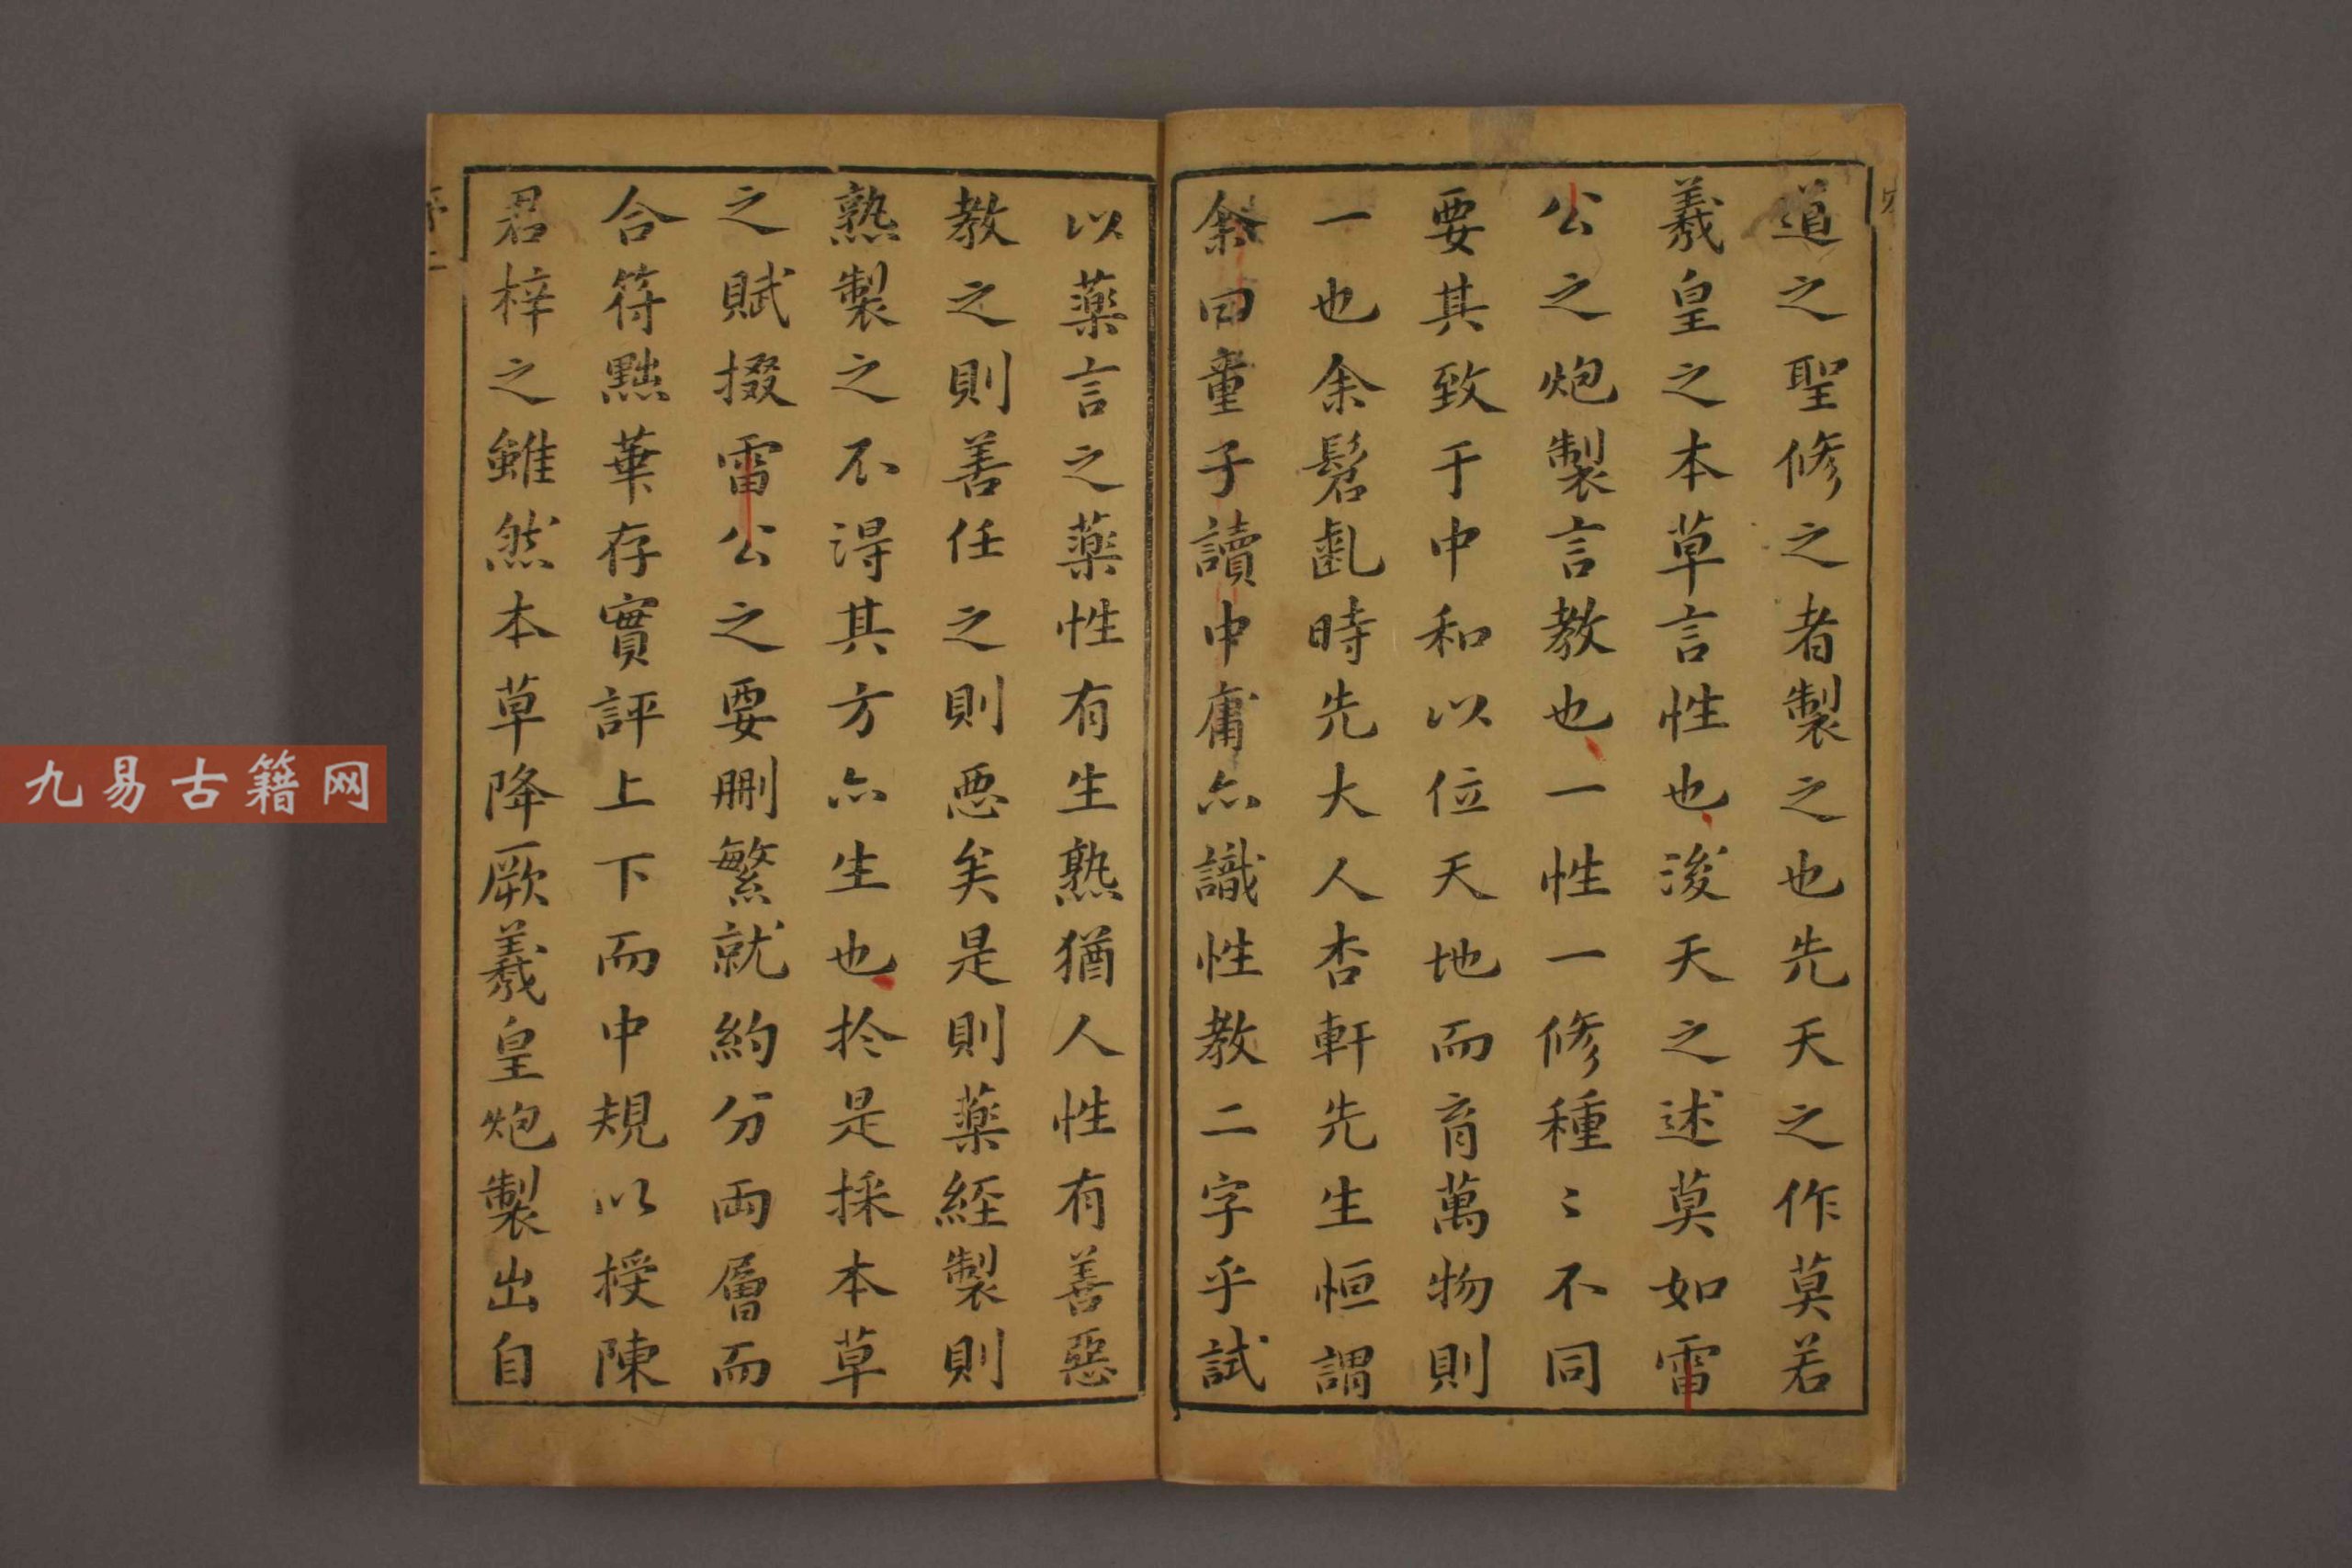 道之聖修之者製之也先天之作莫若
羲皇之本草言性也浚天之述莫如雷
公之炮製言教也一性一修種〻不同
要其致于中和以位天地而育萬物則
一也余髫齓時先大人杏軒先生恒謂
余曰童子讀中庸亦識性教二字乎試
以藥言之藥性有生熟猶人性有善惡
教之則善任之則悪矣是則藥経製則
熟製之不淂其方亦生也扵是採本草
之賦掇雷公之要刪繁就約分両層而
合符黜華存實評上下而中規以授陳
君梓之雖然本草降厥羲皇炮製出自
九易古籍网